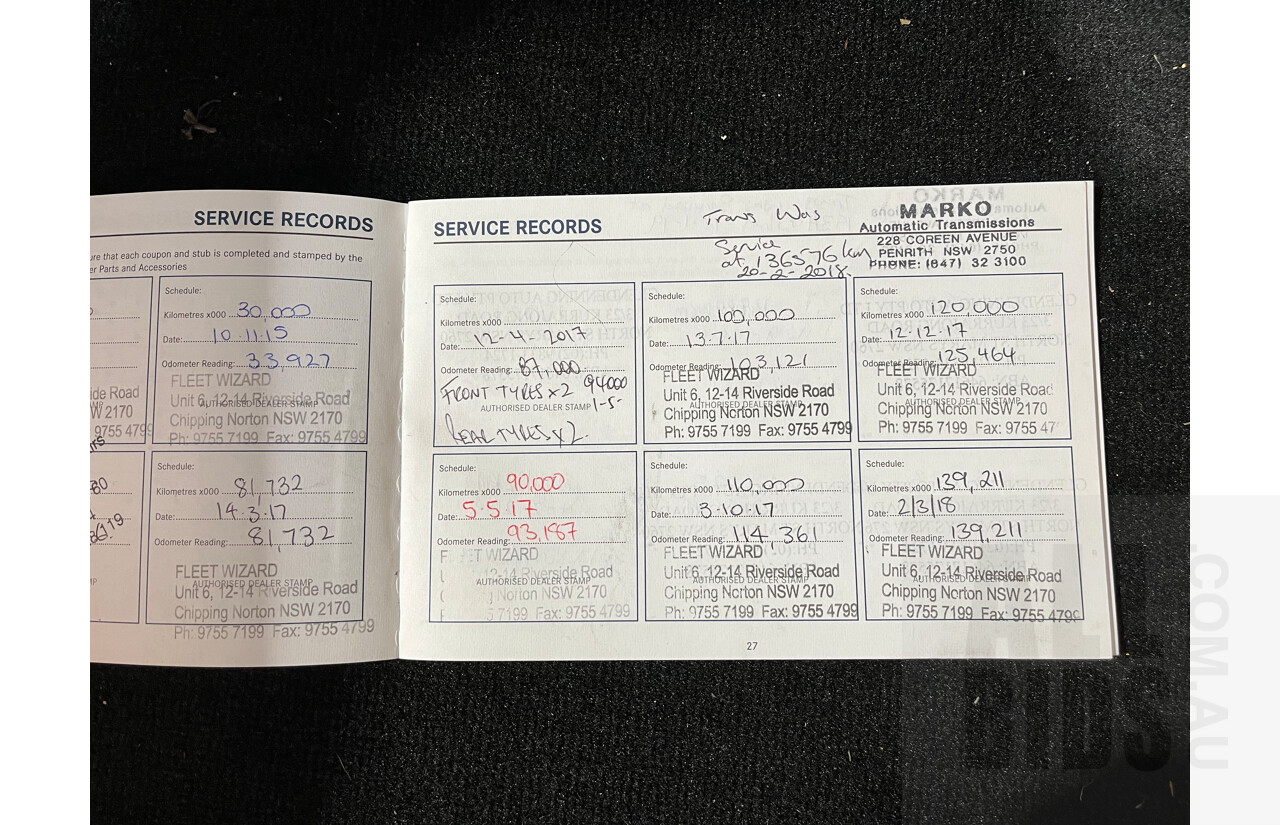 SERVICE RECORDS
ure that each coupon and stub is completed and stamped by the
er Parts and Accessories
Schedule:
Kilometres x000 30,000
Date: 10.11.15
Odometer Reading: 33,927
FLEET WIZARD
Unit 6, 12-14 Riverside Road
AUTHORISED DEALER STAMP
Chipping Norton NSW 2170
Ph: 9755 7199 Fax: 9755 4799
ide Road
W 2170
9755 4799
Schedule:
Kilometres x000 81,732
Date: 14.3.17
Odometer Reading: 81,732
FLEET WIZARD
AUTHORISED DEALER STAMP
Unit 6, 12-14 Riverside Road
Chipping Norton NSW 2170
Ph: 9755 7199 Fax: 9755 4799
SERVICE RECORDS
Trans Was
Service
at 136576 km
20-2-2018
MARKO
Automatic Transmissions
228 COREEN AVENUE
PENRITH NSW 2750
PHONE: (047) 32 3100
Schedule:
Kilometres x000
Date: 12-4-2017
Odometer Reading: 87,000
FRONT TYRES x2 94000
1-5-
AUTHORISED DEALER STAMP
REAR TYRES x2.
Schedule:
Kilometres x000 100,000
Date: 13.7.17
Odometer Reading: 103,121
FLEET WIZARD
Unit 6, 12-14 Riverside Road
AUTHORISED DEALER STAMP
Chipping Norton NSW 2170
Ph: 9755 7199 Fax: 9755 4799
Schedule:
Kilometres x000 120,000
Date: 12.12.17
Odometer Reading: 125,464
FLEET WIZARD
Unit 6, 12-14 Riverside Road
AUTHORISED DEALER STAMP
Chipping Norton NSW 2170
Ph: 9755 7199 Fax: 9755 47
Schedule:
Kilometres x000 90,000
Date: 5.5.17
Odometer Reading: 93,187
F ET WIZARD
12-14 Riverside Road
AUTHORISED DEALER STAMP
g Norton NSW 2170
5 7199 Fax: 9755 4799
Schedule:
Kilometres x000 110,000
Date: 3.10.17
Odometer Reading: 114,361
FLEET WIZARD
Unit 6, 12-14 Riverside Road
AUTHORISED DEALER STAMP
Chipping Norton NSW 2170
Ph: 9755 7199 Fax: 9755 4799
Schedule:
Kilometres x000 139,211
Date: 2/3/18
Odometer Reading: 139,211
FLEET WIZARD
Unit 6, 12-14 Riverside Road
AUTHORISED DEALER STAMP
Chipping Norton NSW 2170
Ph: 9755 7199 Fax: 9755 4799
27
ALL
BIDS
.COM.AU